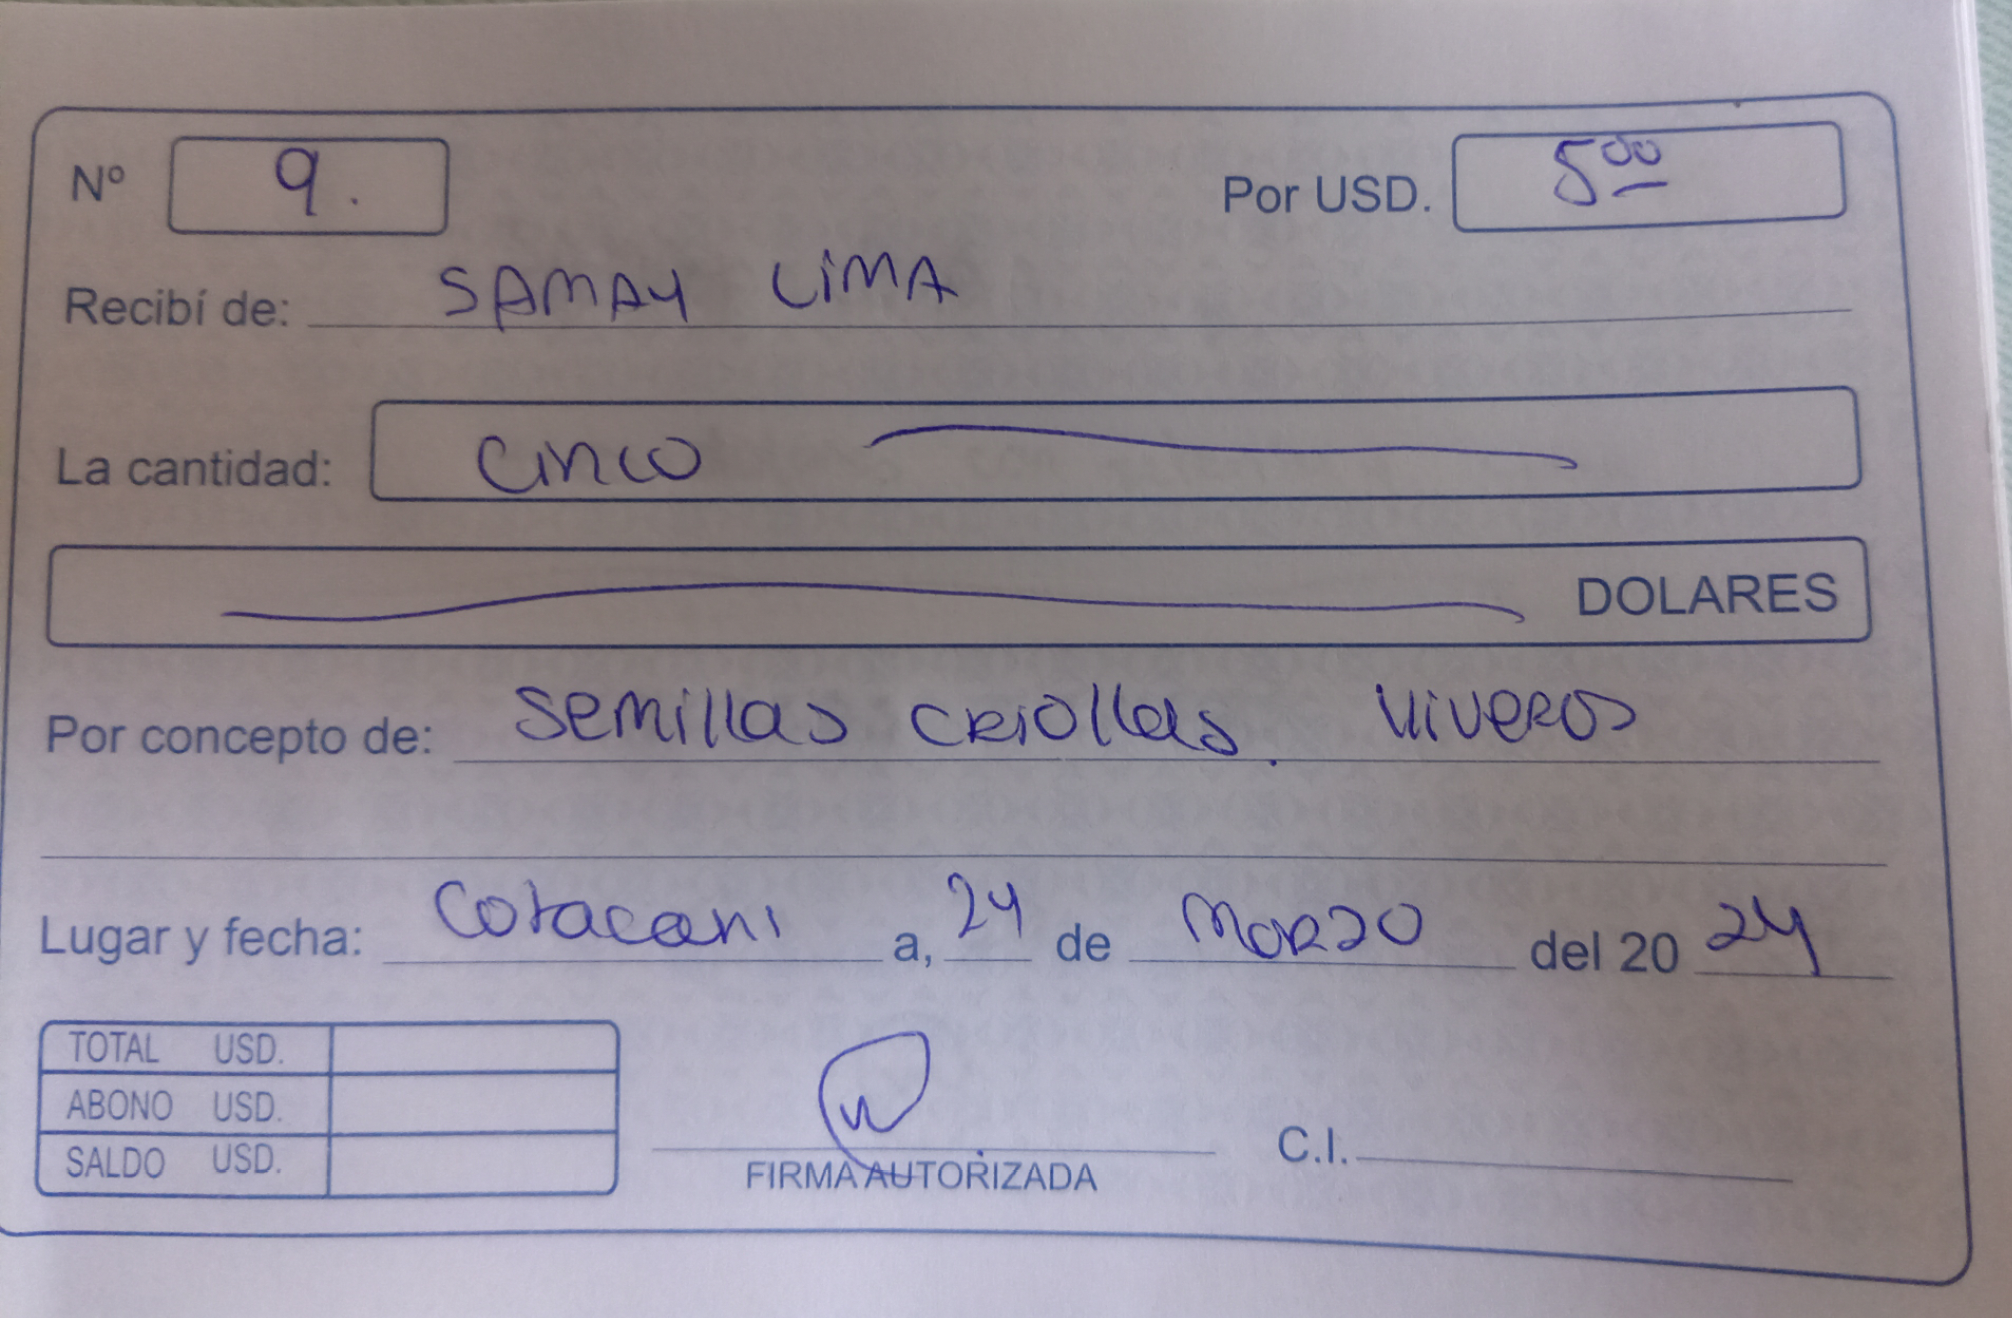 Nº 9. Por USD. 5.00
Recibí de: SAMAY LIMA
La cantidad: cinco
DOLARES
Por concepto de: semillas criollas. viveros
Lugar y fecha: Cotacachi a, 24 de Marzo del 2024
TOTAL USD.
ABONO USD.
SALDO USD.
FIRMA AUTORIZADA C.I.